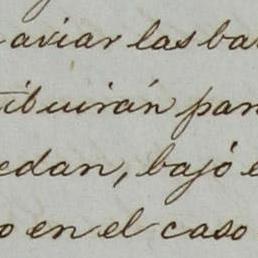 aviar las ba
tibuirán par
edan, bajó e
o en el caso